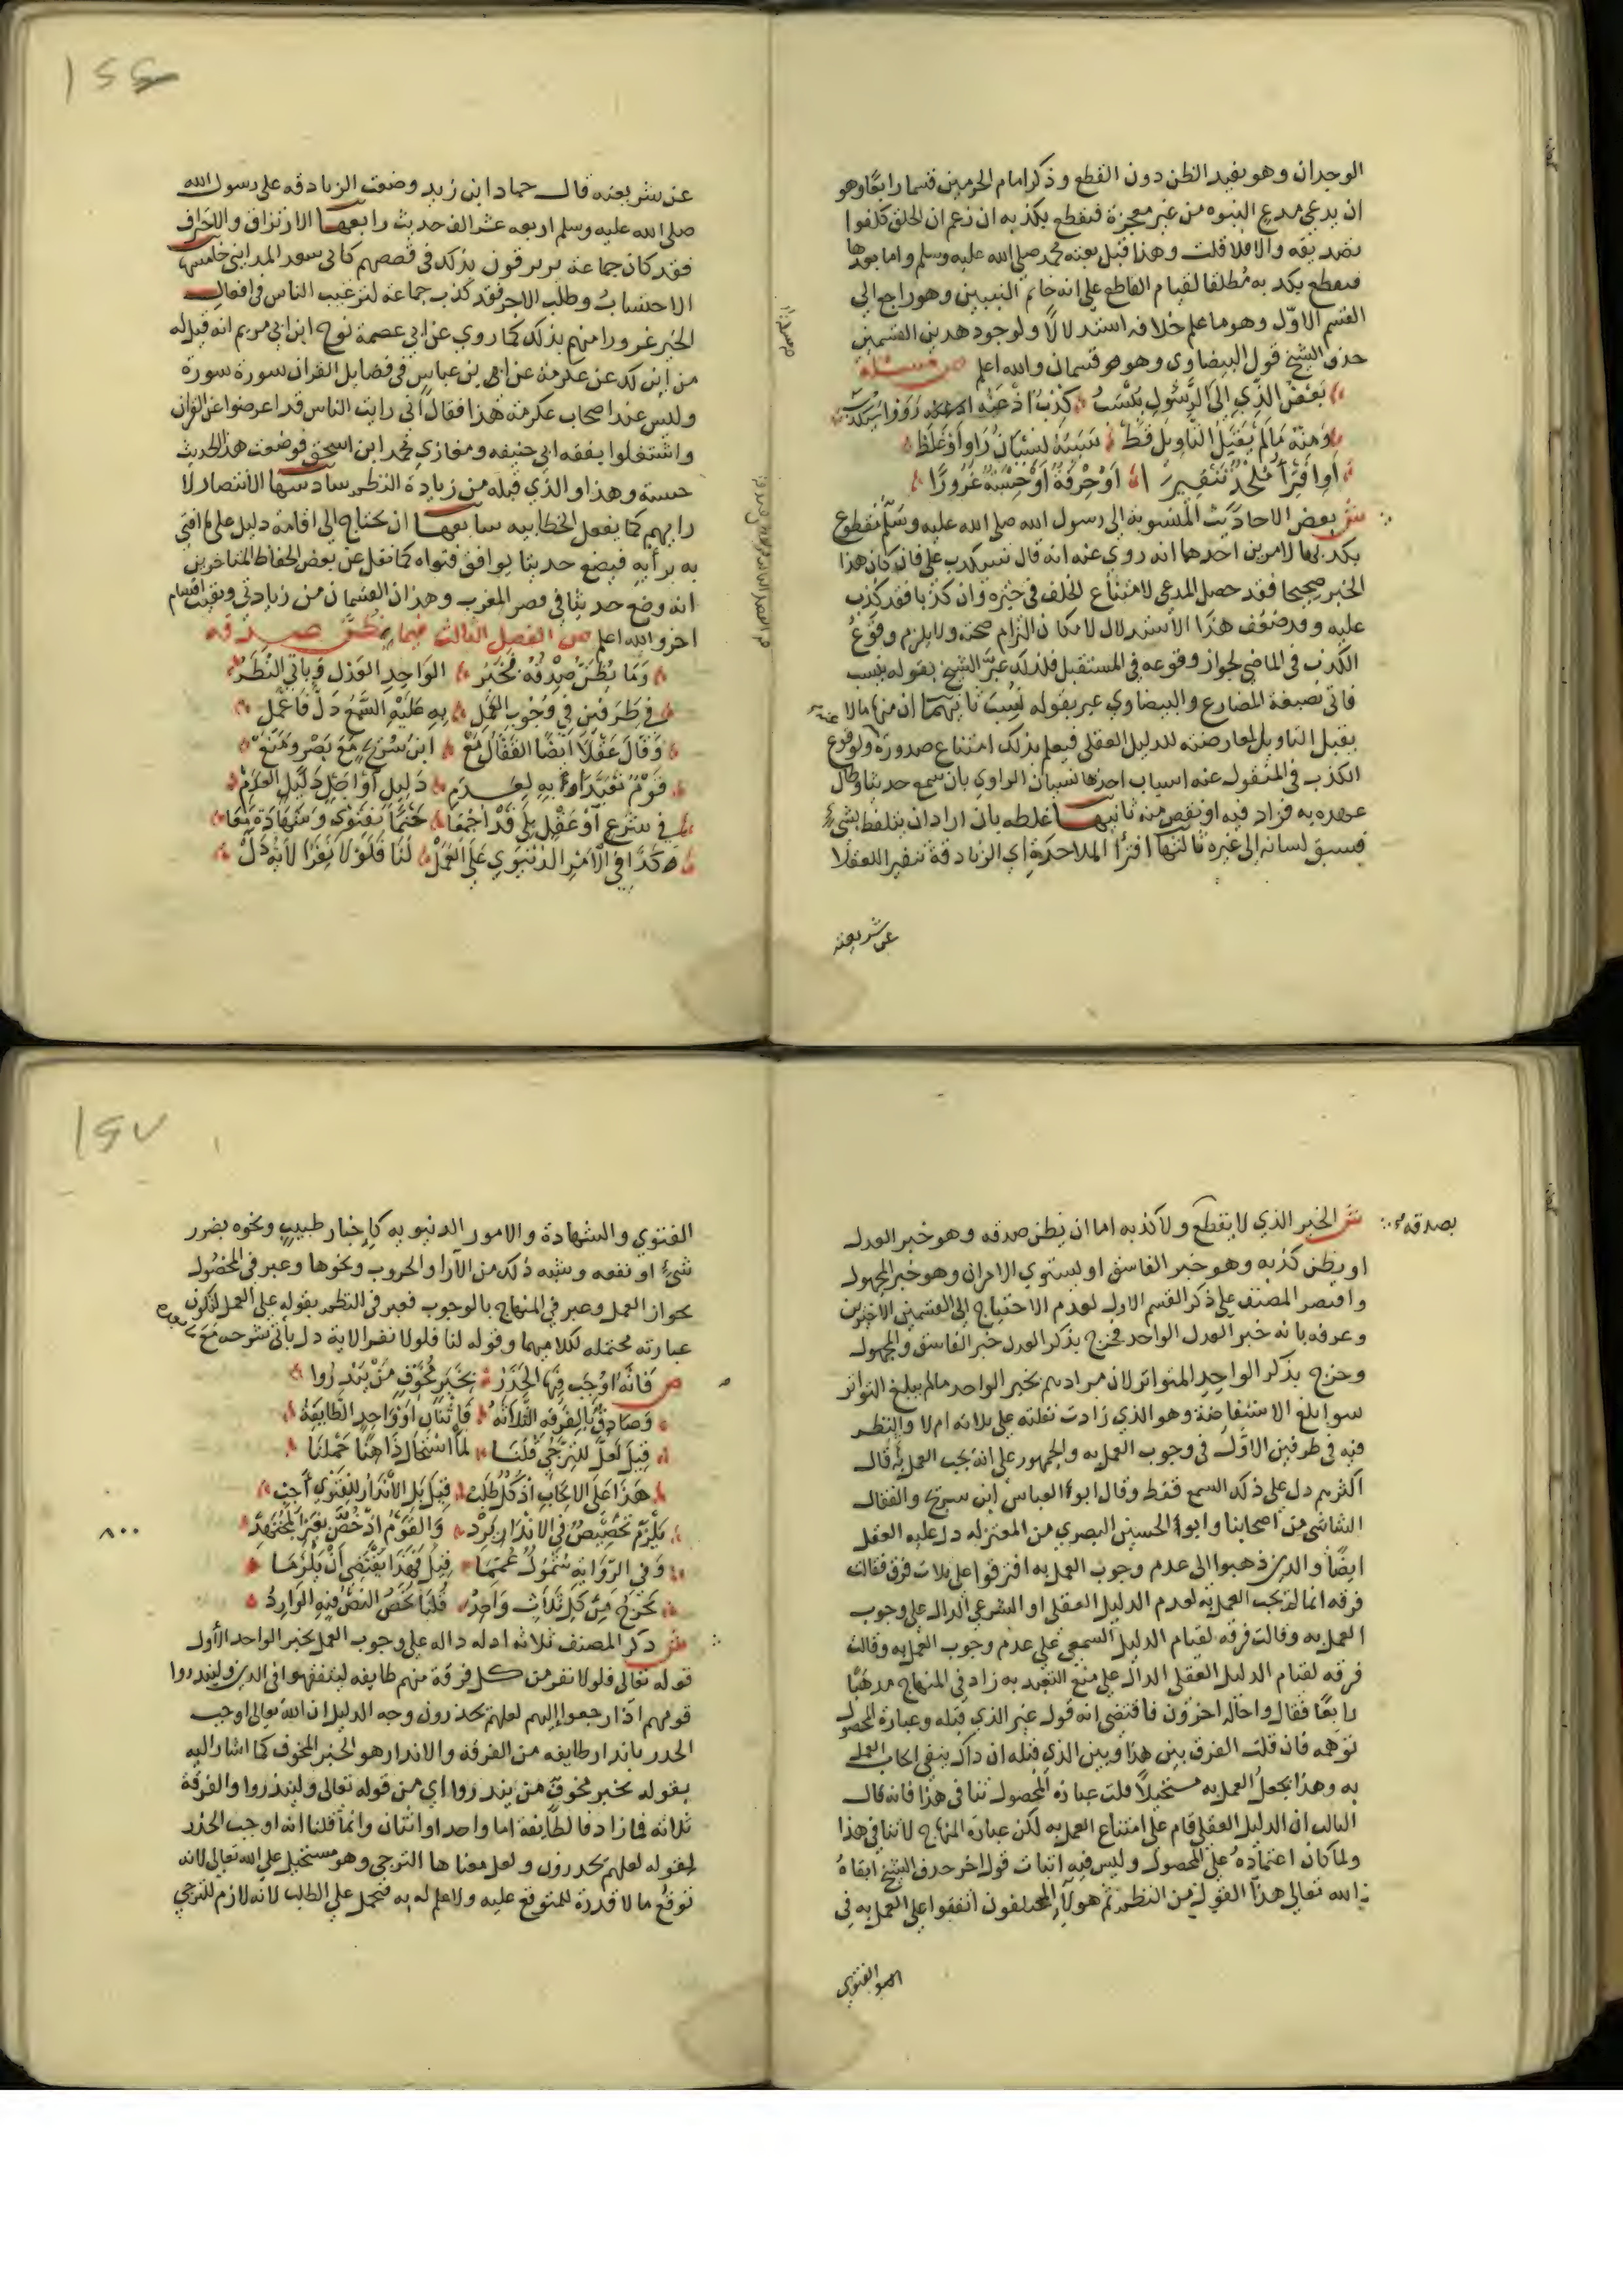 الوجدان وهو يفيد الظن دون القطع وذكر امام الحرمين قسما رابعا وهو
ان يدعي مدع النبوه من غير معجزة فيقطع بكذبه ان زعم ان الخلق كلفوا
بتصديقه والا فلا قلت وهذا قبل بعثه محمد صلى الله عليه وسلم واما بعدها
فيقطع بكذبه مطلقا لقيام القاطع على انه خاتم النبيين وهو راجع الى
القسم الاول وهو ما علم خلافه استدلالا ولوجود هذين القسمين
حذف الشيخ قول البيضاوي وهو قسمان والله اعلم ص مسئلة
بعض الذي الى الرسول ينسب كذب اذ عنه
ومنه ما لم يقبل التاويل قط سببه نسيان راو او غلط
او افترا ملحد تنفيرا او حرفة او حسبة غرورا
ش بعض الاحاديث المنسوبة الى رسول الله صلى الله عليه وسلم مقطوع
بكذبها لامرين احدهما انه روي عنه انه قال سيكذب علي فان كان هذا
الخبر صحيحا فقد حصل المدعى لامتناع الخلف في خبره وان كذبا فقد كذب
عليه وقد ضعف هذا الاستدلال لامكان التزام صحته ولا يلزم وقوع
الكذب في الماضي لجواز وقوعه في المستقبل فلذلك عبر الشيخ بقوله ينسب
فاتى بصيغة المضارع والبيضاوي عبر بقوله نسبت ثانيهما ان منها ما لا
يقبل التاويل لمعارضته للدليل العقلي فيعلم بذلك امتناع صدوره ولوقوع
الكذب في المنقول عنه اسباب احدها نسيان الراوي بان سمع حديثا وطال
عهده به فزاد فيه او نقص منه ثانيها غلطه بان اراد ان يتلفظ بشيء
فسبق لسانه الى غيره ثالثها افترا الملاحدة اي الزنادقة تنفير العقلا
عن شريعته
عن شريعته قال حماد ابن زيد وضعت الزنادقه على رسول الله
صلى الله عليه وسلم اربعه عشر الف حديث رابعها الارتزاق والاحتراف
فقد كان جماعة يرتزقون بذلك في قصصهم كابي سعد المدايني خامسها
الاحتساب وطلب الاجر فقد كذب جماعة لترغيب الناس في افعال
الخير غرورا منهم بذلك كما روي عن ابي عصمة نوح ابن ابي مريم انه قيل له
من اين لك عن عكرمة عن ابن عباس في فضايل القران سورة سورة
وليس عند اصحاب عكرمة هذا فقال اني رايت الناس قد اعرضوا عن القران
واشتغلوا بفقه ابي حنيفه ومغازي محمد ابن اسحق فوضعت هذا الحديث
حسبة وهذا والذي قبله من زيادة النظم سادسها الانتصار لا
رايهم كما يفعل الخطابيه سابعها ان يحتاج الى اقامة دليل على ما افتى
به برأيه فيضع حديثا يوافق فتواه كما نقل عن بعض الحفاظ المتاخرين
انه وضع حديثا في قصر المغرب وهذان القسمان من زيادتي وبقيت اقسام
اخر والله اعلم ص الفصل الثالث فيما يظن صدقه
وما يظن صدقه مخبر الواحد العدل وياتي النظر
في طرفين في وجوب العمل به عليه السمع دل فاعمل
وقال عقلا ايضا القفال مع ابن سريج مع بصر ومنع
قوم تعبدا به لعدم دليل او اجل دليل العدم
في شرع او عقل بلى قد اجمعا حتما بفتوى وشهادة معا
وكذا في الامر الدنيوي على العمل لنا فلولا نفرا لاية دل
ش الخبر الذي لا يقطع بصدقه ولا كذبه اما ان يظن صدقه وهو خبر العدل
او يظن كذبه وهو خبر الفاسق او يستوي الامران وهو خبر المجهول
واقتصر المصنف على ذكر القسم الاول لعدم الاحتياج الى القسمين الاخيرين
وعرفه بانه خبر العدل الواحد فخرج بذكر العدل خبر الفاسق والمجهول
وخرج بذكر الواحد المتواتر لان مرادهم بخبر الواحد ما لم يبلغ التواتر
سوا بلغ الاستفاضة وهو الذي زادت نقلته على ثلاثه ام لا والنظر
فيه في طرفين الاول في وجوب العمل به والجمهور على انه يجب العمل به قال
اكثرهم دل على ذلك السمع فقط وقال ابو العباس ابن سريج والقفال
الشاشي من اصحابنا وابو الحسين البصري من المعتزله دل عليه العقل
ايضا والذين ذهبوا الى عدم وجوب العمل به افترقوا على ثلاث فرق فقالت
فرقه انما لم يجب العمل به لعدم الدليل العقلي او الشرعي الدال على وجوب
العمل به وقالت فرقه لقيام الدليل السمعي على عدم وجوب العمل به وقالت
فرقه لقيام الدليل العقلي الدال على منع التعبد به زاد في المنهاج مذهبا
رابعا فقال واحاله اخرون فاقتضى انه قول غير الذي قبله وعبارة المحصول
توهمه فان قلت الفرق بين هذا وبين الذي قبله ان ذاك ينفي ايجاب العمل
به وهذا يجعل العمل به مستحيلا قلت عبارة المحصول تنافي هذا فانه قال
الثالث ان الدليل العقلي قام على امتناع العمل به لكن عبارة المنهاج لا تنافي هذا
ولما كان اعتماده على المحصول وليس فيه اثبات قول اخر حذف الشيخ ابقاه
الله تعالى هذا القول من النظم ثم هولاء المختلفون اتفقوا على العمل به في
الفتوى
الفتوى والشهادة والامور الدنيويه كاخبار طبيب ونحوه بضرر
شيء او نفعه وشبه ذلك من الآرا والحروب ونحوها وعبر في المحصول
بجواز العمل وعبر في المنهاج بالوجوب فعبر في النظم بقوله على العمل لتكون
عبارته محتمله لكلاميهما وقوله لنا فلولا نفر الاية دل يأتي شرحه مع
ص فانه اوجب فيها الحذر بخبر مخوف من ينذروا
وصادق بالفرقه الثلاثه فاثنان او واحد الطايفة
قيل لعل للترجي قلنا لما استحال ذا هنا حملنا
هذا على الايجاب اذ كل طلب قيل بل الانذار للفتوى اجب
يلزم تخصيص في الانذار يرد والقوم اذ خص بغير المجتهد
وفي الرواية شمول عمما قيل فهذا يقتضي ان يلزما
يخرج من كل ثلاث واحد قلنا يخص النص فيه الوارد
٨٠٠
ش ذكر المصنف ثلاثه ادله داله على وجوب العمل بخبر الواحد الأول
قوله تعالى فلولا نفر من كل فرقة منهم طايفه ليتفقهوا في الدين ولينذروا
قومهم اذا رجعوا إليهم لعلهم يحذرون وجه الدليل ان الله تعالى اوجب
الحذر بانذار طايفه من الفرقة والانذار هو الخبر المخوف كما اشار اليه
بقوله بخبر مخوف من ينذروا أي من قوله تعالى ولينذروا والفرقة
ثلاثه فما زاد فالطائفة اما واحد او اثنان وانما قلنا انه اوجب الحذر
لقوله لعلهم يحذرون ولعل معناها الترجي وهو مستحيل على الله تعالى لانه
توقع ما لا قدرة للمتوقع عليه ولا علم له به فتحمل على الطلب لانه لازم للترجي